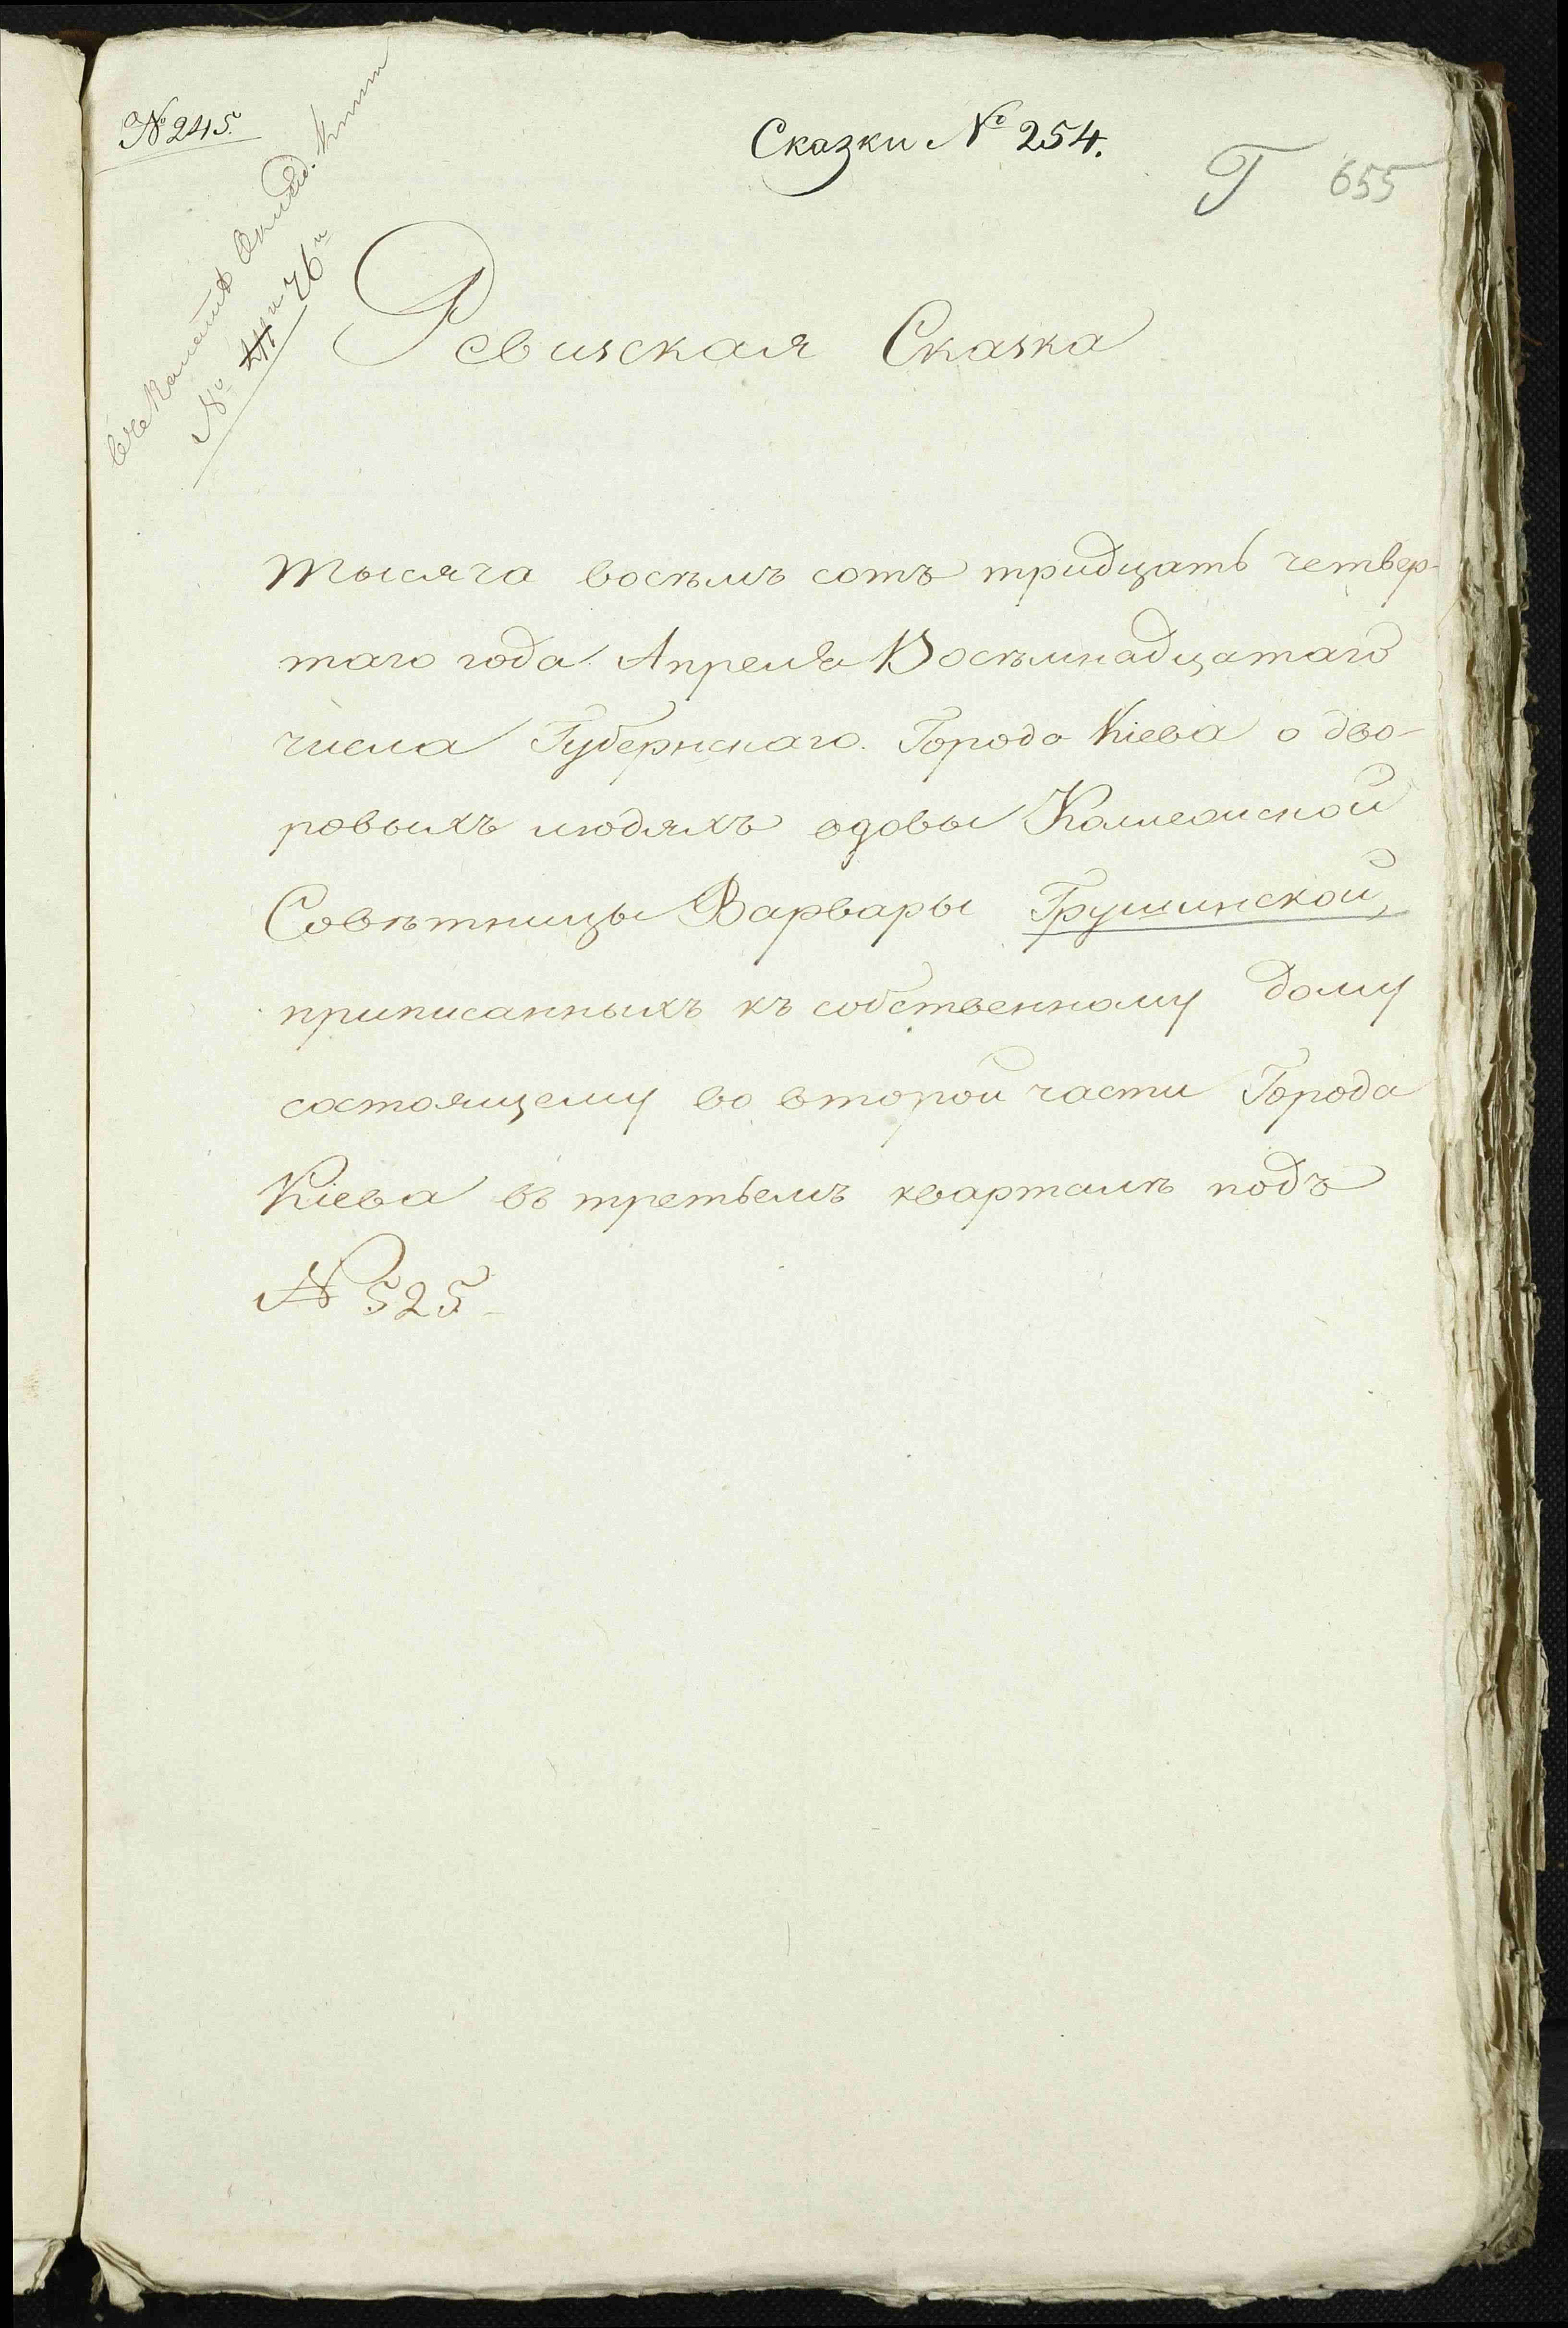 № 245.
Сказки № 254.
Т 655
№ 76
Ревизская Сказка
тысяча восѣмъ сотъ тридцать четвер-
таго года Апреля Восѣмнадцатаго
числа Губернскаго Города Кіева о дво-
ровыхъ людяхъ вдовы Колежской
Совѣтницы Варвары Грушинской,
приписанныхъ къ собственному дому
состоящему во второй части Города
Кіева въ третьемъ кварталѣ подъ
№ 525